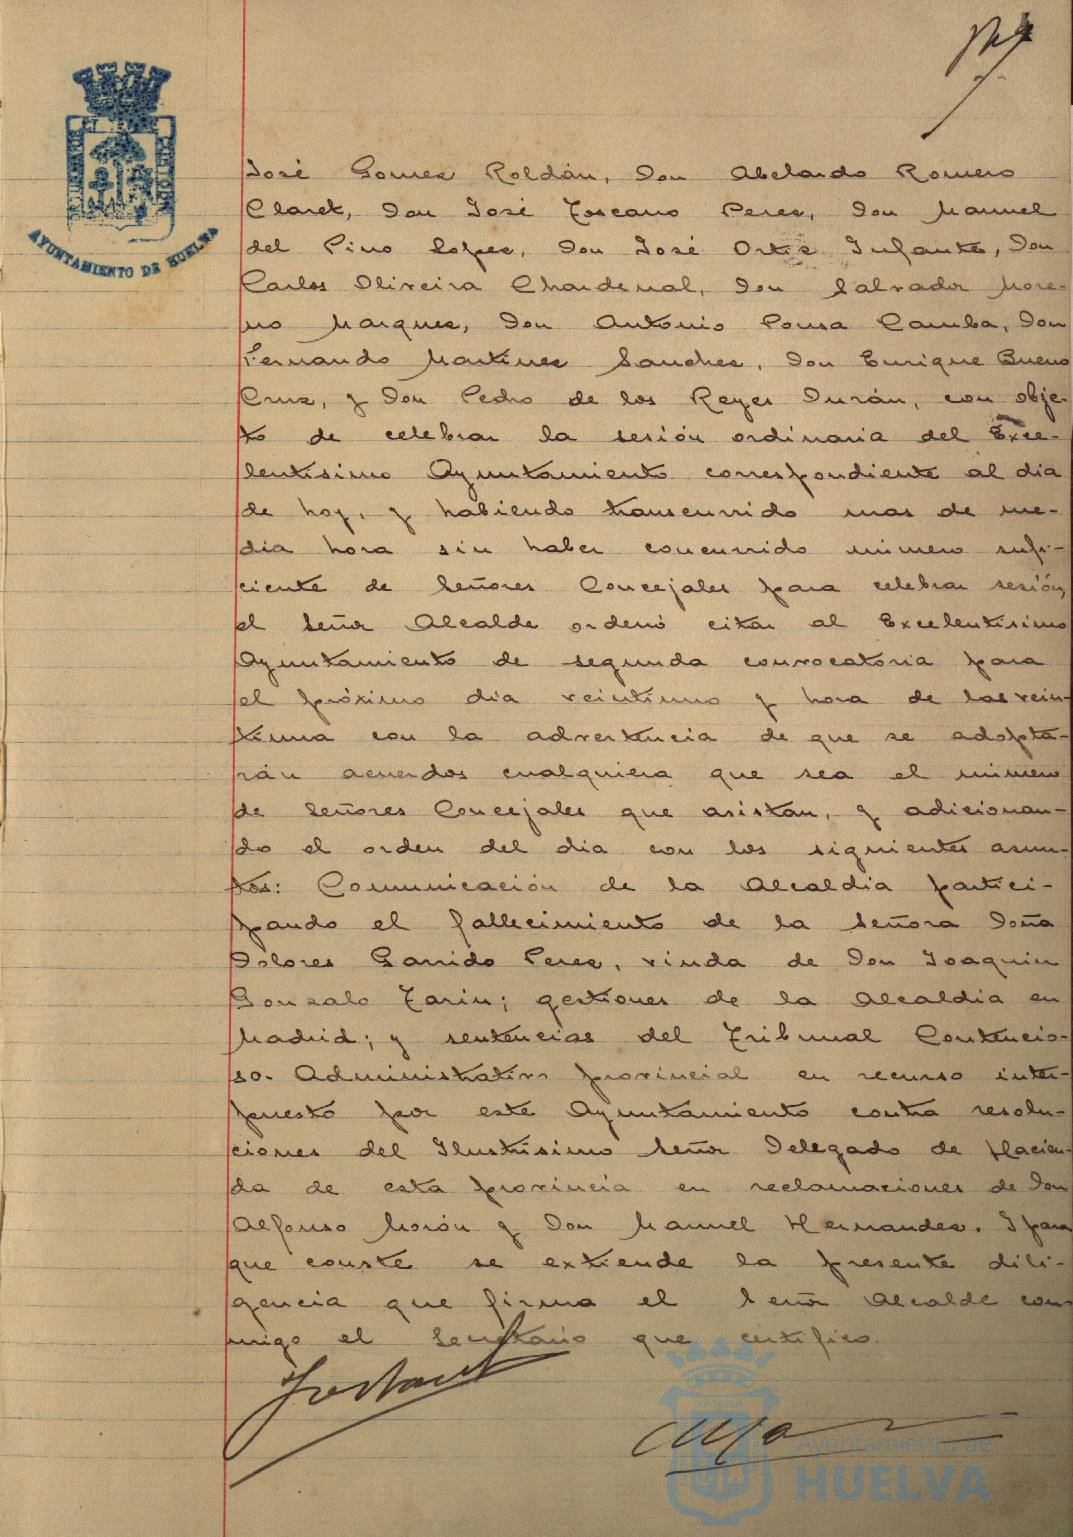 AYUNTAMIENTO DE HUELVA
José Gomez Roldán, Don Abelardo Romero
Claret, Don José Toscano Perez, Don Manuel
del Pino Lopez, Don José Ortiz Infante, Don
Carlos Oliveira Chardenal, Don Salvador More-
no Marquez, Don Antonio Pousa Camba, Don
Fernando Martinez Sanchez, Don Enrique Bueno
Cruz, y Don Pedro de los Reyes Durán, con obje-
to de celebrar la sesión ordinaria del Exce-
lentísimo Ayuntamiento correspondiente al dia
de hoy, y habiendo transcurrido mas de me-
dia hora sin haber concurrido número sufi-
ciente de Señores Concejales para celebrar sesión,
el Señor Alcalde ordenó citar al Excelentísimo
Ayuntamiento de segunda convocatoria para
el próximo dia veintiuno y hora de las vein-
tiuna con la advertencia de que se adopta-
rán acuerdos cualquiera que sea el número
de Señores Concejales que asistan, y adicionan-
do el orden del dia con los siguientes asun-
tos: Comunicación de la Alcaldia partici-
pando el fallecimiento de la Señora Doña
Dolores Garrido Perez, viuda de Don Joaquin
Gonzalo Tarin; gestiones de la Alcaldia en
Madrid; y sentencias del Tribunal Contencio-
so-Administrativo provincial en recurso inter-
puesto por este Ayuntamiento contra resolu-
ciones del Ilustrísimo Señor Delegado de Hacien-
da de esta provincia en reclamaciones de Don
Alfonso Morón y Don Manuel Hernandez. Y para
que conste se extiende la presente dili-
gencia que firma el Señor Alcalde con-
migo el Secretario que certifico.
Ayuntamiento de
HUELVA